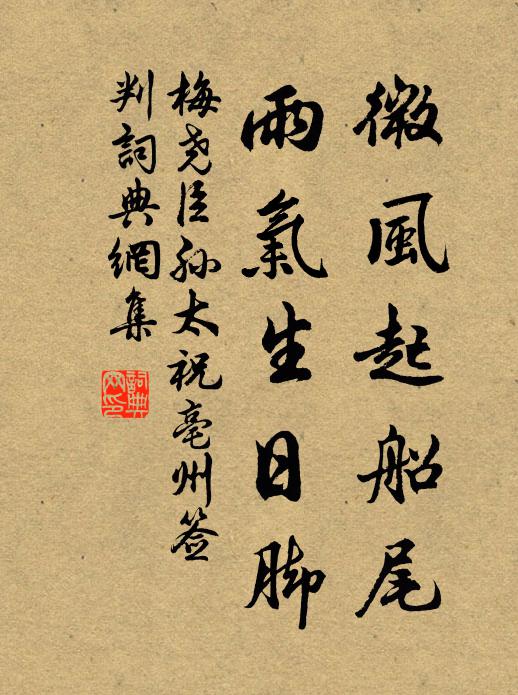 微風起船尾
雨氣生日脚
梅尧臣孙太祝亳州签
判詞典網集
詞典網印